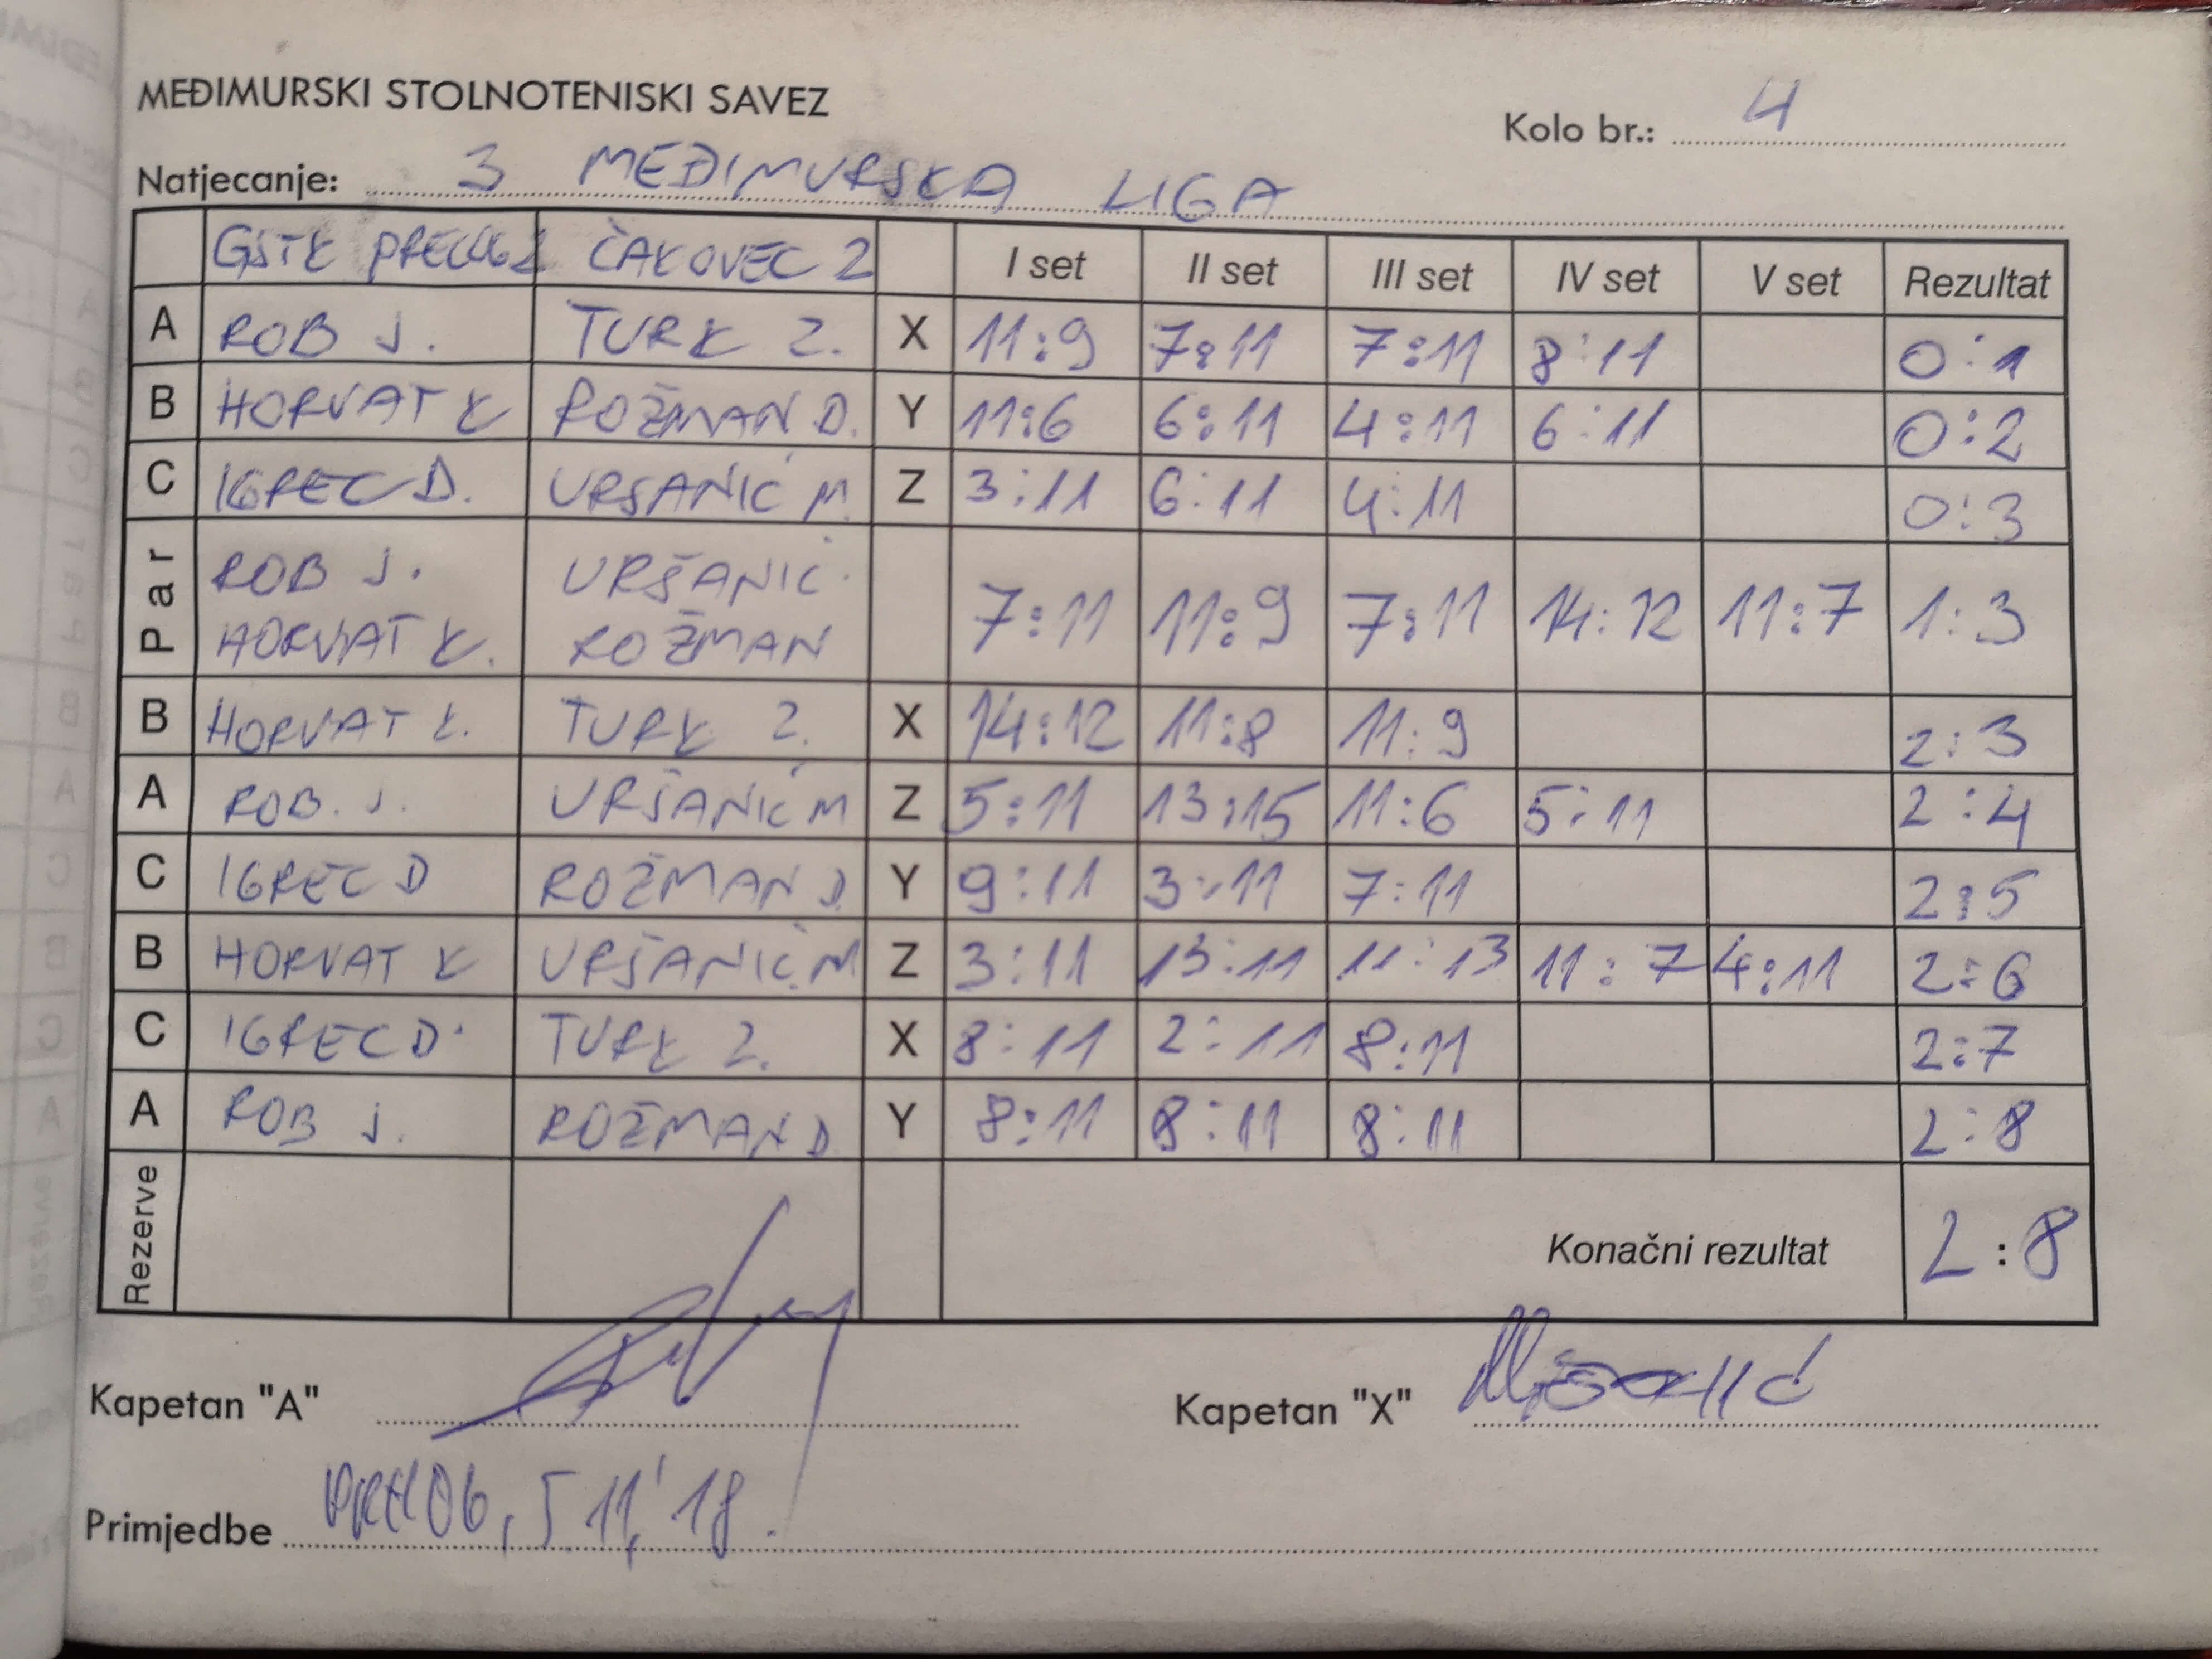 MEĐIMURSKI STOLNOTENISKI SAVEZ
Kolo br.: 4
Natjecanje: 3 MEĐIMURSKA LIGA
GSTK ČAKOVEC 2 I set II set III set IV set V set Rezultat
A ROB J. TURK Z. X 11:9 7:11 7:11 8:11 0:1
B HORVAT K ROŽMAN D. Y 11:6 6:11 4:11 6:11 0:2
C IGREC D. URŠANIĆ M. Z 3:11 6:11 4:11 0:3
Par ROB J. URŠANIĆ 7:11 11:9 7:11 14:12 11:7 1:3
HORVAT K. ROŽMAN
B HORVAT K. TURK Z. X 14:12 11:8 11:9 2:3
A ROB. J. URŠANIĆ M Z 5:11 13:15 11:6 5:11 2:4
C IGREC D ROŽMAN D. Y 9:11 3:11 7:11 2:5
B HORVAT K URŠANIĆ M Z 3:11 13:11 11:13 11:7 4:11 2:6
C IGREC D. TURK Z. X 8:11 2:11 8:11 2:7
A ROB J. ROŽMAN D Y 8:11 8:11 8:11 2:8
Rezerve Konačni rezultat 2:8
Kapetan "A" Kapetan "X"
Primjedbe 5 11, '18.